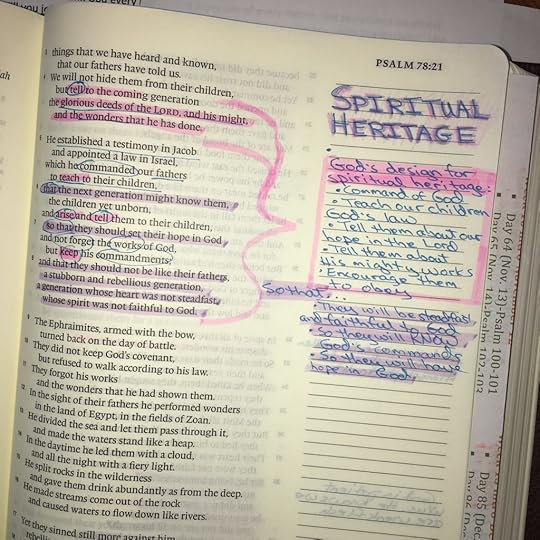 PSALM 78:21
3 things that we have heard and known,
that our fathers have told us.
4 We will not hide them from their children,
but tell to the coming generation
the glorious deeds of the LORD, and his might,
and the wonders that he has done.
5 He established a testimony in Jacob
and appointed a law in Israel,
which he commanded our fathers
to teach to their children,
6 that the next generation might know them,
the children yet unborn,
and arise and tell them to their children,
7 so that they should set their hope in God
and not forget the works of God,
but keep his commandments;
8 and that they should not be like their fathers,
a stubborn and rebellious generation,
a generation whose heart was not steadfast,
whose spirit was not faithful to God.
9 The Ephraimites, armed with the bow,
turned back on the day of battle.
10 They did not keep God's covenant,
but refused to walk according to his law.
11 They forgot his works
and the wonders that he had shown them.
12 In the sight of their fathers he performed wonders
in the land of Egypt, in the fields of Zoan.
13 He divided the sea and let them pass through it,
and made the waters stand like a heap.
14 In the daytime he led them with a cloud,
and all the night with a fiery light.
15 He split rocks in the wilderness
and gave them drink abundantly as from the deep.
16 He made streams come out of the rock
and caused waters to flow down like rivers.
17 Yet they sinned still more against him,
SPIRITUAL
HERITAGE
God's design for
spiritual heritage:
• Command of God
• Teach our children
God's law
• Tell them about our
hope in the Lord
• Tell them about
His mighty works
• Encourage them
to obey
So that...
• They will be steadfast
and faithful to God
• So they will KNOW
God's commands
• So they will have
hope in God
• Day 64 (Nov. 13)-Psalm 100-101
Day 65 (Nov. 14)-Psalm 102-103
• Day 85 (Dec.